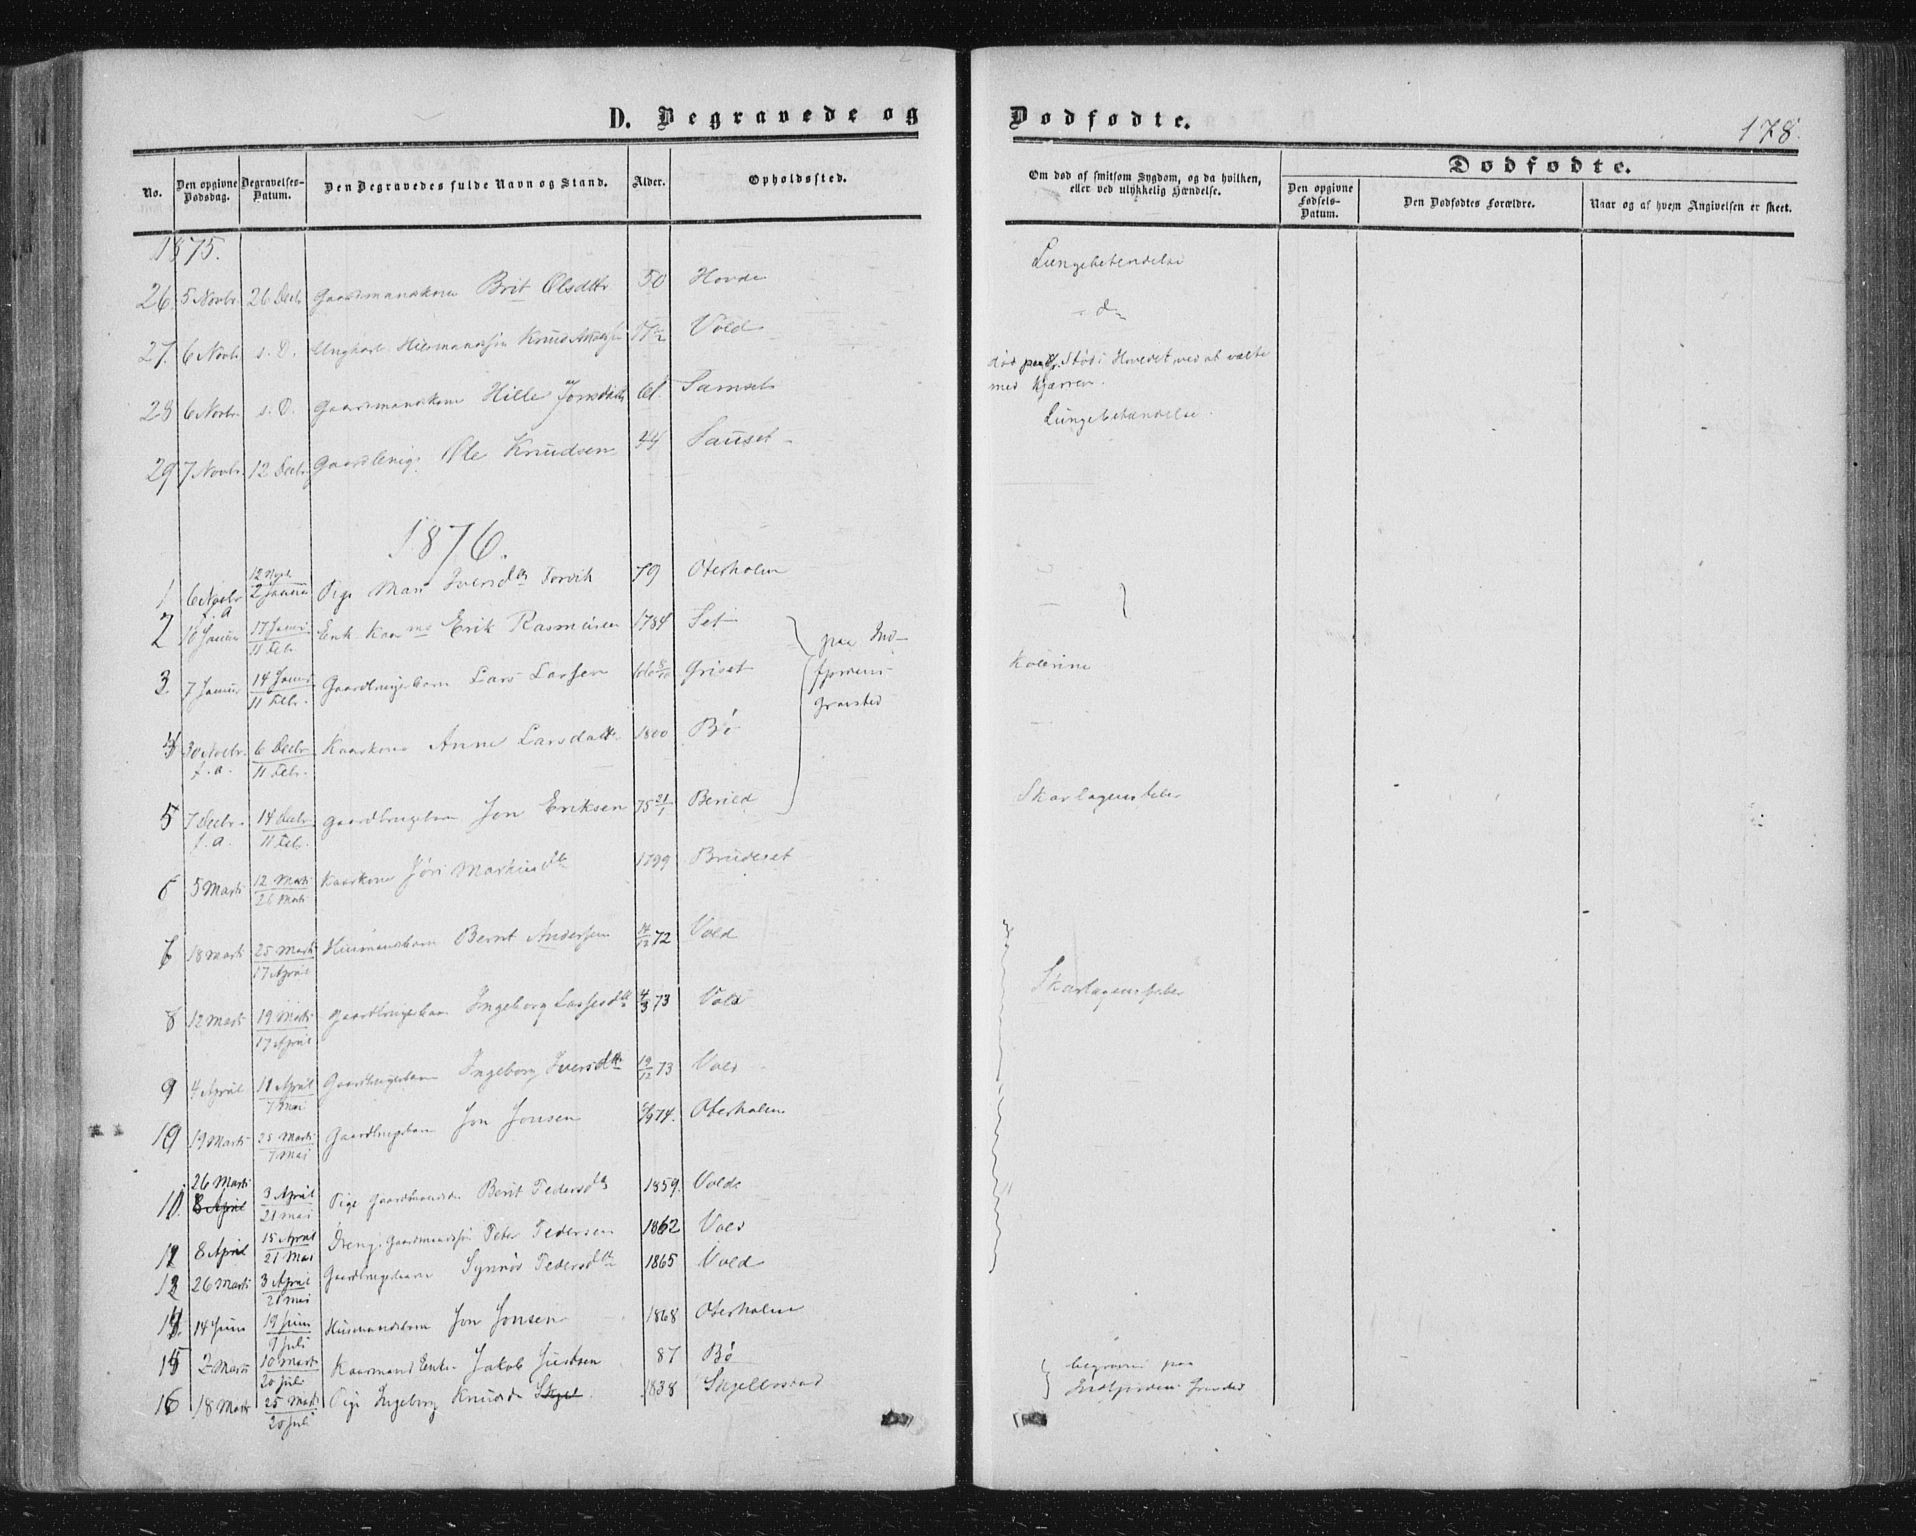 D. Begravede og Dødfødte.
178.
No.
Den opgivne Dødsdag.
Begravelses-Datum.
Den Begravedes fulde Navn og Stand.
Alder.
Opholdssted.
Om død af smitsom Sygdom, og da hvilken, eller ved ulykkelig Hændelse.
Dødfødte.
Den opgivne Fødsels-Datum.
Den Dødfødtes Forældre.
Naar og af hvem Angivelsen er skeet.
1875.
26. 5 Novbr 26 Decbr Gaardmandskone Brit Olsdttr 50 Hovde Lungebetendelse
27. 6 Novbr s. D. Ungkarl Knud Andersen Vold - d -
28 6 Novbr s. D. Gaardmandskone Hille Jonsdatter 61. Samset død paa Stød i Hovedet ved at vælte
med Kjærren.
29 7 Novbr. 12 Decbr Ole Knudsen 44 Sauset Lungebetændelse.
1876.
1 6 Novbr f. a 12 Novbr 2 Januar Pige Mari Iversdtr Torvik 79 Oterholm
2 Januar 17 Januar 11 Feb. Enk. Erik Rasmusen 1784 Set
paa Ind-
fjordens
Gravsted
3. 7 Januar 14 Januar 11 Febr. Lars Larsen Griset Kolerine
4 30 Novbr f. a. 6 Decbr 11 Febr. Kaarkone Anne Larsdattr 1800 Bø
5 7 Decbr. f. a. 14 Decbr 11 Febr. Gaardbrugerbarn Jon Eriksen 75 21/1 Berild Skarlagensfeber
6 5 Marts 12 Marts 26 Marts Kaarkone Jöri 1799 Bruderset
18 Marts 25 Marts 17 April Husmandsbarn Bernt Andersen 72 Vold
8 12 Marts 19 Marts 17 April Gaardbrugerbarn Ingeborg Lassesdtr 4/3 73 Vold Skarlagensfeber
9 4 April 11 April 7 Mai Gaardbrugerbarn Ingeborg Iversdtr 19/12 73 Vold
10 19 Marts 25 Marts 7 Mai Gaardbrugerbarn Jon Jonsen 74. Oterholm
26 Marts 8 April 3 April 21 Mai Pige Berit Pedersdtr 1859. Volds
8 April 15 April 21 Mai Dreng. Peter Pedersen 1862 Vold
26 Marts 3 April 21 Mai Gaardbrugerbarn Synnøv Pedersdtr 1865 Vold
14 14 Juni 19 Juni 9 Juli Husmandsbarn Jon Jonsen 1868 Oterholm
15 2 Marts 10 Marts 20 Juli Kaarmand Enke. Jakob 87 Bø begraven paa
16 18 Marts 25 Marts 20 Juli Pige Ingeborg Knudsd 1838 Skjellestad Indfjordens Gravsted